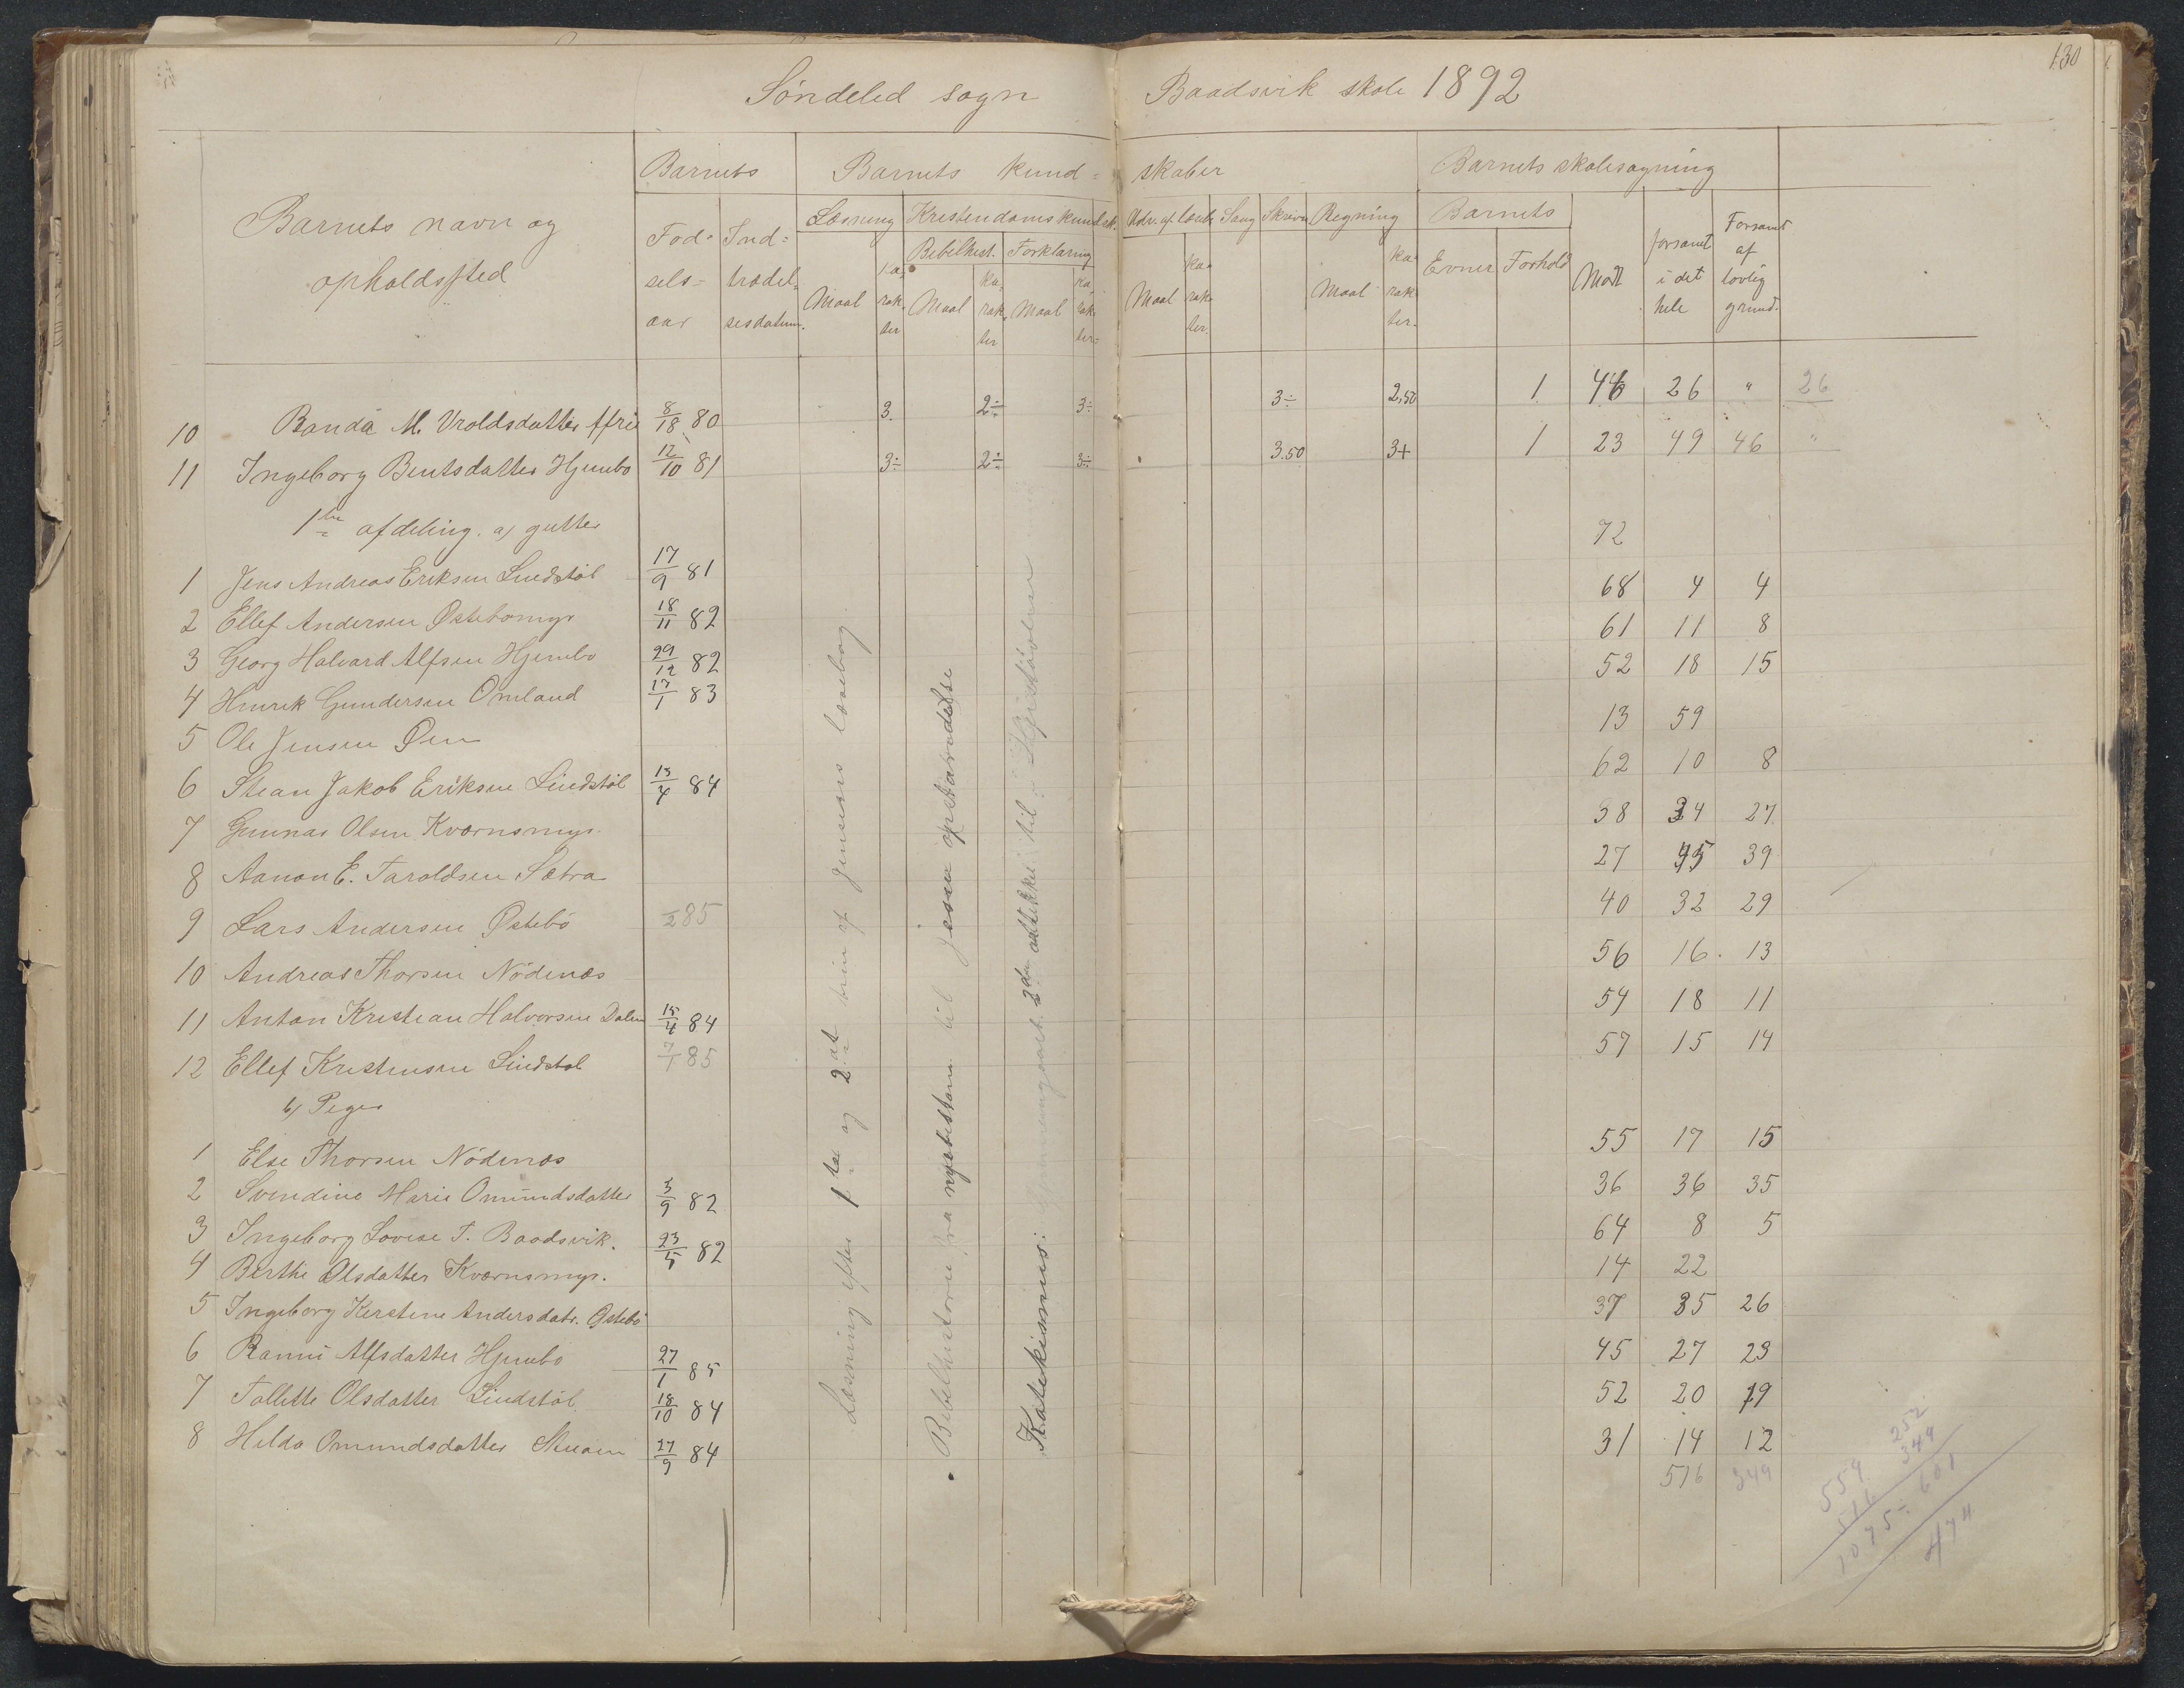 130
Söndeled sogn Baadsvik skole 1892
Barnets navn og opholdssted
Barnets
Fød= sels= aar
Ind= trædel= sesdatum.
Barnets kund= skaber
Læsning
Maal ka rak ter
Kristendomskundsk.
Bibelhist.
Maal ka rak ter
Forklaring
Maal ka rak ter
Udv. af læseb.
Maal ka rak ter.
Sang
Skrivn
Regning
Maal ka rak ter.
Barnets
Evner Forhold
Barnets skolesøgning
Mött
forsømt i det hele
Forsømt af lovlig grund.
10 Randa M. Vroldsdatter 8/18 80 3. 2÷ 3÷ 3÷ 2,50 1 46 26 " 26
11 Ingeborg Bentsdatter Hjembo 12/10 81 3÷ 2÷ 3÷ 3.50 3+ 1 23 49 46 "
1ste afdeling. a) gutter 72
1 Jens Andreas Eriksen Lindstöl 17/9 81 68 4 4
2 Ellef Andersen Östebomyr 18/11 82 61 11 8
3 Georg Halvard Alfsen Hjembo 29/12 82 52 18 15
4 Henrek Gundersen Omland 17/1 83 13 59
5 Ole Jensen Øen 62 10 8
6 Stean Jakob Eriksen Lindstöl 13/4 84 38 34 27
7 Gunnar Olsen Kvernsmyr. 27 45 39
8 Aanon E. Taroldsen Sætra 40 32 29
9 Lars Andersen Østebö /2 85 56 16. 13
10 Andreas Thorsen Nödenæs 54 18 11
11 Anton Kristian Halvorsen Dalen 15/4 84 57 15 14
12 Ellef Kristensen Lindstöl 7/1 85
b) Piger
1 Else Thorsen Nödenæs 55 17 15
2 Svendine Marie Omundsdatter 3/9 82 36 36 35
3 Ingeborg Lovise T. Baadsvik. 23/5 82 64 8 5
4 Berthe Olsdatter Kvernsmyr. 14 22
5 Ingeborg Kerstine Andersdatr. Østebö 37 35 26
6 Ranni Alfsdatter Hjembo 27/1 85 45 27 23
7 Tallette Olsdatter Lindstöl 18/10 84 52 20 19
8 Hilda Omundsdatter 27/9 84 31 14 12
516 349
Læsning efter 1ste og 2det trin af Jensens læsebog
Bibelhistorie fra nyetestam. til Jesu opstandelse
Katekismus: gjennemgaaet 2den artikkel til
252
349
559
516
1075 ÷ 601
474